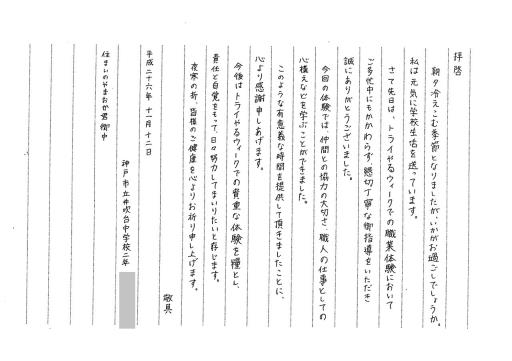 拝啓
朝夕冷えこむ季節となりましたが、いかがお過ごしでしょうか。
私は元気に学校生活を送っています。
さて先日は、トライやるウィークでの職業体験において
ご多忙中にもかかわらず、懇切丁寧な御指導をいただき
誠にありがとうございました。
今回の体験では、仲間との協力の大切さ、職人の仕事としての
心構えなどを学ぶことができました。
このような有意義な時間を提供して頂きましたことに、
心より感謝申しあげます。
今後はトライやるウィークでの貴重な体験を糧とし、
責任と自覚をもって、日々努力してまいりたいと存じます。
夜寒の折、皆様のご健康を心よりお祈り申し上げます。
敬具
平成二十六年 十一月十二日
神戸市立井吹台中学校二年
住まいのやまおか君御中